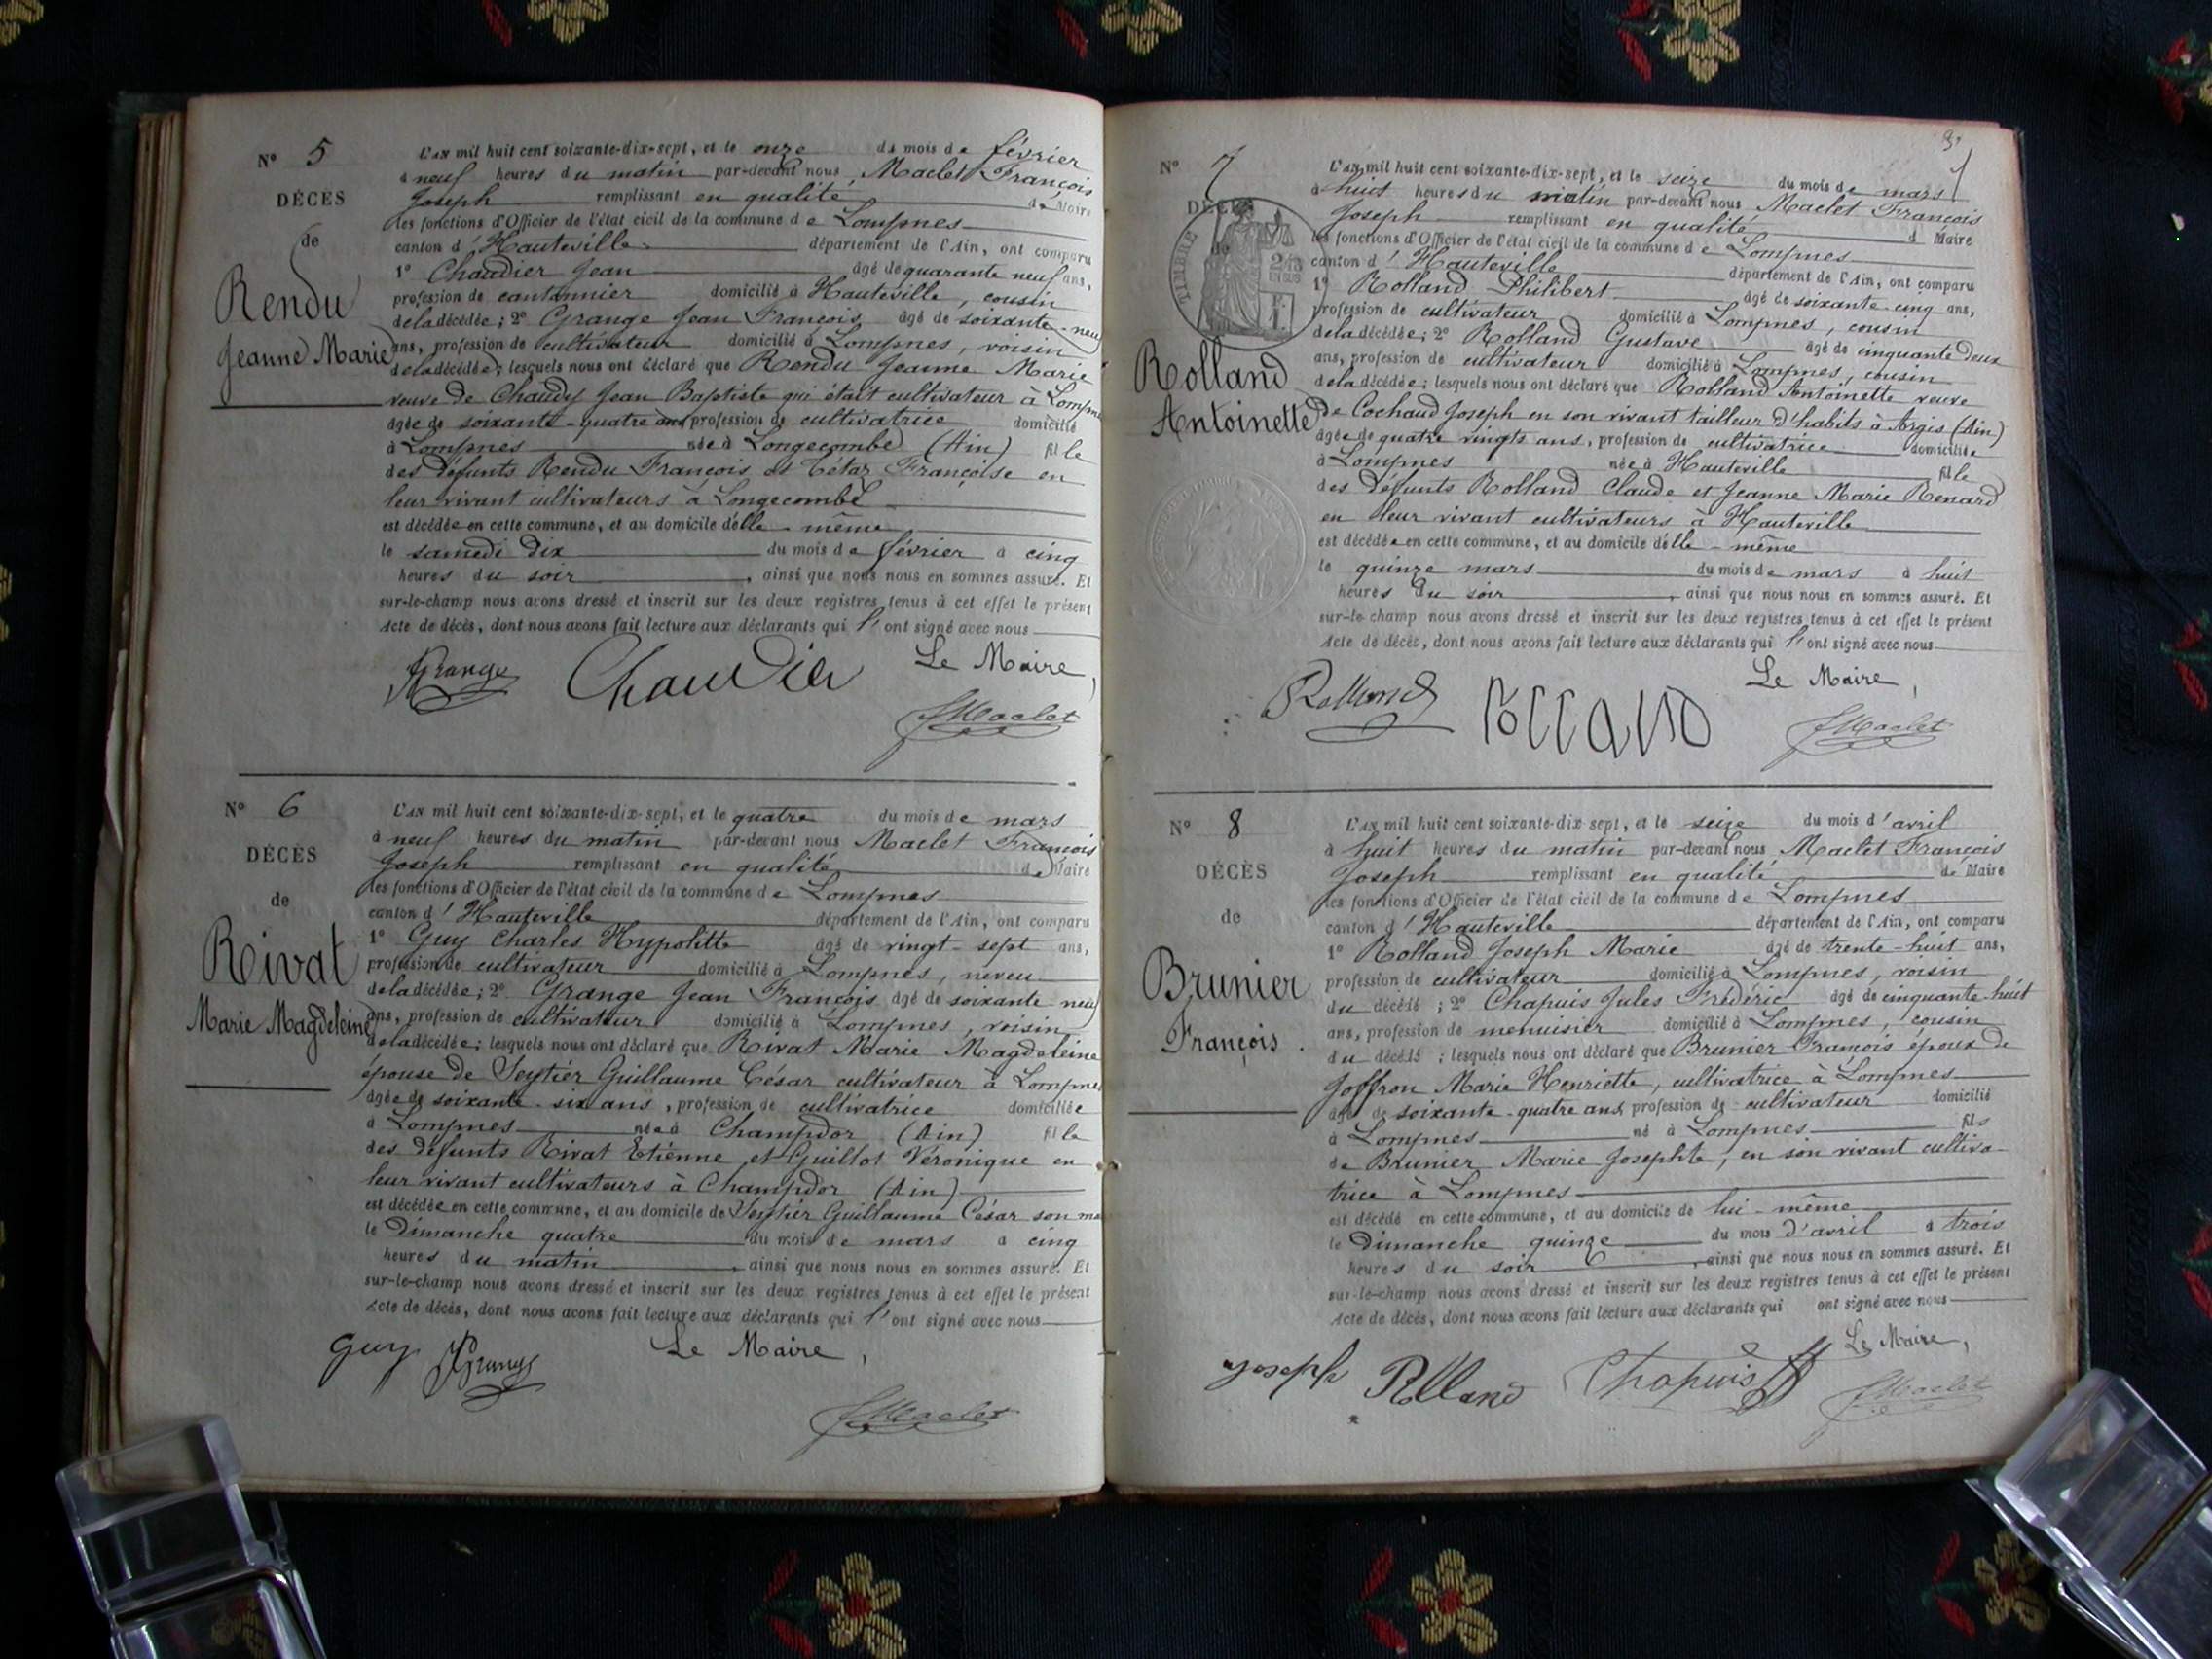 N° 5
DÉCÈS
de
Rendu
Jeanne Marie
L'AN mil huit cent soixante-dix-sept, et le onze du mois de février
à neuf heures du matin par-devant nous, Maclet François
Joseph remplissant en qualité de Maire
les fonctions d'Officier de l'état civil de la commune de Lompnes
canton d'Hauteville département de l'Ain, ont comparu
1° Chaudier Jean âgé de quarante neuf ans,
profession de cantonnier domicilié à Hauteville, cousin
de la décédée; 2° Grange Jean François âgé de soixante-neuf
ans, profession de cultivateur domicilié à Lompnes, voisin
de la décédée; lesquels nous ont déclaré que Rendu Jeanne Marie
veuve de Chaudy Jean Baptiste qui était cultivateur à Lompnes
âgée de soixante-quatre ans profession de cultivatrice domicilié
à Lompnes née à Longecombe (Ain) fille
des défunts Rendu François et Tétaz Françoise en
leur vivant cultivateurs à Longecombe
est décédée en cette commune, et au domicile d'elle-même
le samedi dix du mois de février à cinq
heures du soir, ainsi que nous nous en sommes assuré. Et
sur-le-champ nous avons dressé et inscrit sur les deux registres tenus à cet effet le présent
Acte de décès, dont nous avons fait lecture aux déclarants qui l'ont signé avec nous
Grange Chaudier Le Maire,
JMaclet
N° 6
DÉCÈS
de
Rivat
Marie Magdeleine
L'AN mil huit cent soixante-dix-sept, et le quatre du mois de mars
à neuf heures du matin par-devant nous Maclet François
Joseph remplissant en qualité de Maire
les fonctions d'Officier de l'état civil de la commune de Lompnes
canton d'Hauteville département de l'Ain, ont comparu
1° Guy Charles Hypolitte âgé de vingt-sept ans,
profession de cultivateur domicilié à Lompnes, neveu
de la décédée; 2° Grange Jean François âgé de soixante neuf
ans, profession de cultivateur domicilié à Lompnes, voisin
de la décédée; lesquels nous ont déclaré que Rivat Marie Magdeleine
épouse de Seytier Guillaume César cultivateur à Lompnes
âgée de soixante-six ans, profession de cultivatrice domiciliée
à Lompnes née à Champdor (Ain) fille
des défunts Rivat Etienne et Guillot Véronique en
leur vivant cultivateurs à Champdor (Ain)
est décédée en cette commune, et au domicile de Seytier Guillaume César son ma
le Dimanche quatre du mois de mars à cinq
heures du matin, ainsi que nous nous en sommes assuré. Et
sur-le-champ nous avons dressé et inscrit sur les deux registres tenus à cet effet le présent
Acte de décès, dont nous avons fait lecture aux déclarants qui l'ont signé avec nous
Guy JGrange Le Maire,
JMaclet
N° 7
DÉCÈS
de
TIMBRE
Rolland
Antoinette
L'AN mil huit cent soixante-dix-sept, et le seize du mois de mars
à huit heures du matin par-devant nous Maclet François
Joseph remplissant en qualité d Maire
les fonctions d'Officier de l'état civil de la commune de Lompnes
canton d'Hauteville département de l'Ain, ont comparu
1° Rolland Philibert âgé de soixante-cinq ans,
profession de cultivateur domicilié à Lompnes, cousin
de la décédée; 2° Rolland Gustave âgé de cinquante deux
ans, profession de cultivateur domicilié à Lompnes, cousin
de la décédée; lesquels nous ont déclaré que Rolland Antoinette veuve
de Cochaud Joseph en son vivant tailleur d'habits à Argis (Ain)
âgée de quatre vingts ans, profession de cultivatrice domiciliée
à Lompnes née à Hauteville fille
des défunts Rolland Claude et Jeanne Marie Renard
en leur vivant cultivateurs à Hauteville
est décédée en cette commune, et au domicile d'elle-même
le quinze mars du mois de mars à huit
heures du soir, ainsi que nous nous en sommes assuré. Et
sur-le-champ nous avons dressé et inscrit sur les deux registres tenus à cet effet le présent
Acte de décès, dont nous avons fait lecture aux déclarants qui l'ont signé avec nous
Rolland Rolland Le Maire,
JMaclet
N° 8
DÉCÈS
de
Brunier
François.
L'AN mil huit cent soixante-dix-sept, et le seize du mois d'avril
à huit heures du matin par-devant nous Maclet François
Joseph remplissant en qualité de Maire
les fonctions d'Officier de l'état civil de la commune de Lompnes
canton d'Hauteville département de l'Ain, ont comparu
1° Rolland Joseph Marie âgé de trente-huit ans,
profession de cultivateur domicilié à Lompnes, voisin
du décédé; 2° Chapuis Jules Frédéric âgé de cinquante huit
ans, profession de menuisier domicilié à Lompnes, cousin
du décédé; lesquels nous ont déclaré que Brunier François époux de
Joffron Marie Henriette, cultivatrice à Lompnes
âgé de soixante-quatre ans profession de cultivateur domicilié
à Lompnes né à Lompnes fils
de Brunier Marie Josephte, en son vivant cultiva-
trice à Lompnes
est décédé en cette commune, et au domicile de lui-même
le Dimanche quinze du mois d'avril à trois
heures du soir, ainsi que nous nous en sommes assuré. Et
sur-le-champ nous avons dressé et inscrit sur les deux registres tenus à cet effet le présent
Acte de décès, dont nous avons fait lecture aux déclarants qui ont signé avec nous
Le Maire,
joseph Rolland Chapuis JMaclet